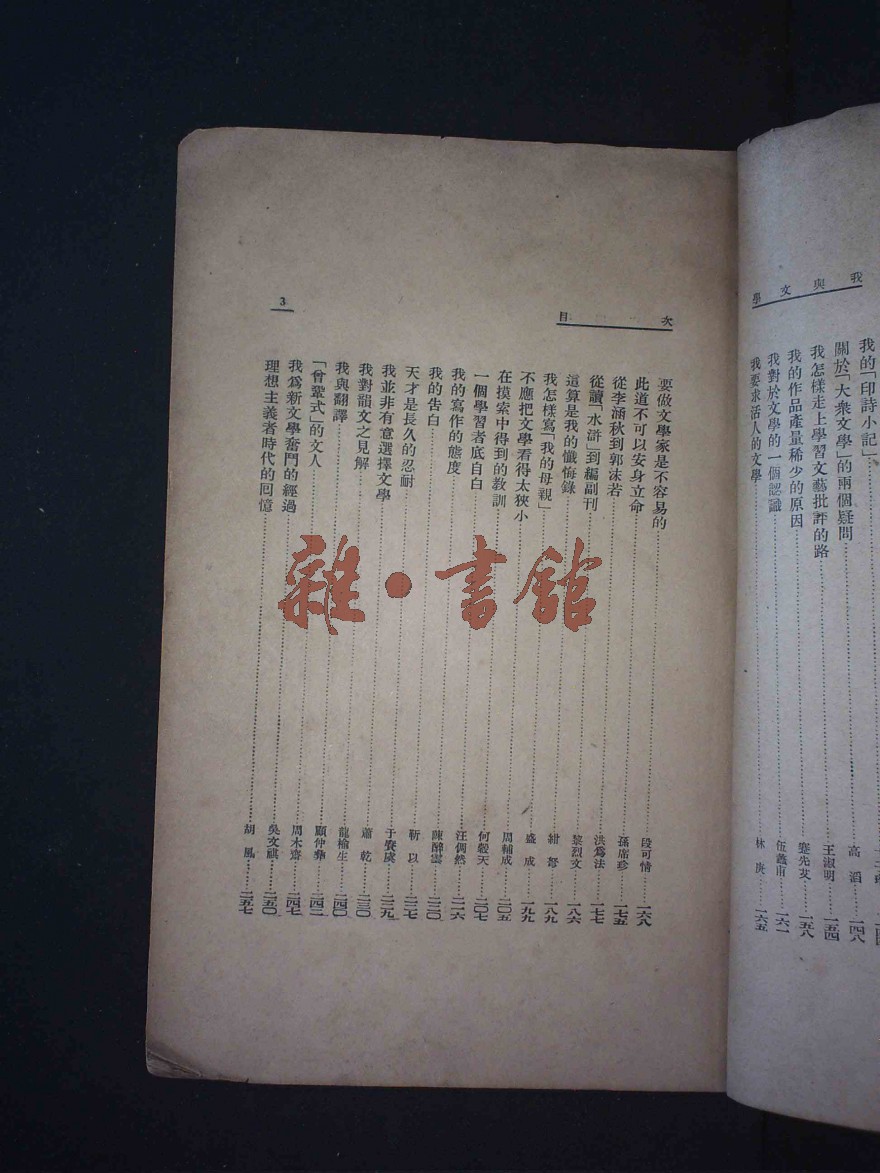 我與文學
我的「印詩小記」
關於「大衆文學」的兩個疑問 高滔 一四八
我怎樣走上學習文藝批評的路 王淑明 一五四
我的作品產量稀少的原因 蹇先艾 一五八
我對於文學的一個認識 伍蠡甫 一六一
我要求活人的文學 林庚 一六五
目次
3
要做文學家是不容易的 段可情 一六八
此道不可以安身立命 孫席珍 一七五
從李涵秋到郭沫若 洪爲法 一七七
從讀「水滸」到編副刊 黎烈文 一八六
這算是我的懺悔錄 紺弩 一八九
我怎樣寫「我的母親」 盛成 一九九
不應把文學看得太狹小 周輔成 二〇五
在摸索中得到的教訓 何穀天 二〇七
一個學習者底自白 汪倜然 二一六
我的寫作的態度 陳醉雲 二二〇
我的告白 靳以 二二七
天才是長久的忍耐 于賡虞 二二九
我並非有意選擇文學 蕭乾 二三〇
我對韻文之見解 龍榆生 二四〇
我與翻譯 顧仲彝 二四二
「曾鞏式」的文人 周木齋 二四七
我爲新文學奮鬥的經過 吳文祺 二五〇
理想主義者時代的回憶 胡風 二五七
雜·書館